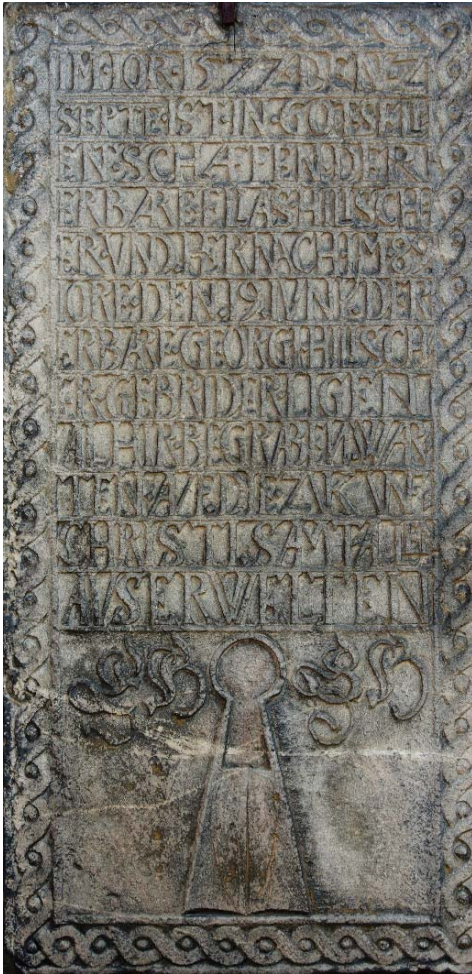 IM·IOR·1577·DEN·2
SEPTE·IST·IN·GOT·SEIL
EN·SCHÆFEN·DER
ERBÆRE·ELAS·HILSCH
ER·VND·HERNACH·IM·89·
IORE·DEN·19·IVNY·DER
ERBÆRE·GEORG·HILSCH
ER·GEBRIDER·LIGEN
ALHIR·BEGRABEN·WAR
TEN·AVF·DIE·ZAKVNF
CHRISTI·SAMT·ALL
AVSERWELTEN